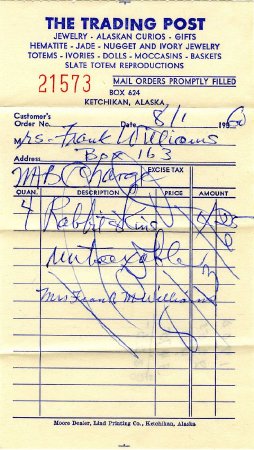 THE TRADING POST
JEWELRY - ALASKAN CURIOS - GIFTS
HEMATITE - JADE - NUGGET AND IVORY JEWELRY
TOTEMS - IVORIES - DOLLS - MOCCASINS - BASKETS
SLATE TOTEM REPRODUCTIONS
21573 MAIL ORDERS PROMPTLY FILLED
BOX 624
KETCHIKAN, ALASKA,
Customer's
Order No. Date 8/1 1960
Mrs. Frank Williams
Address Box 163
EXCISE TAX
QUAN. DESCRIPTION PRICE AMOUNT
4 Rabbit skins
Mrs Frank M Williams
Moore Dealer, Lind Printing Co., Ketchikan, Alaska